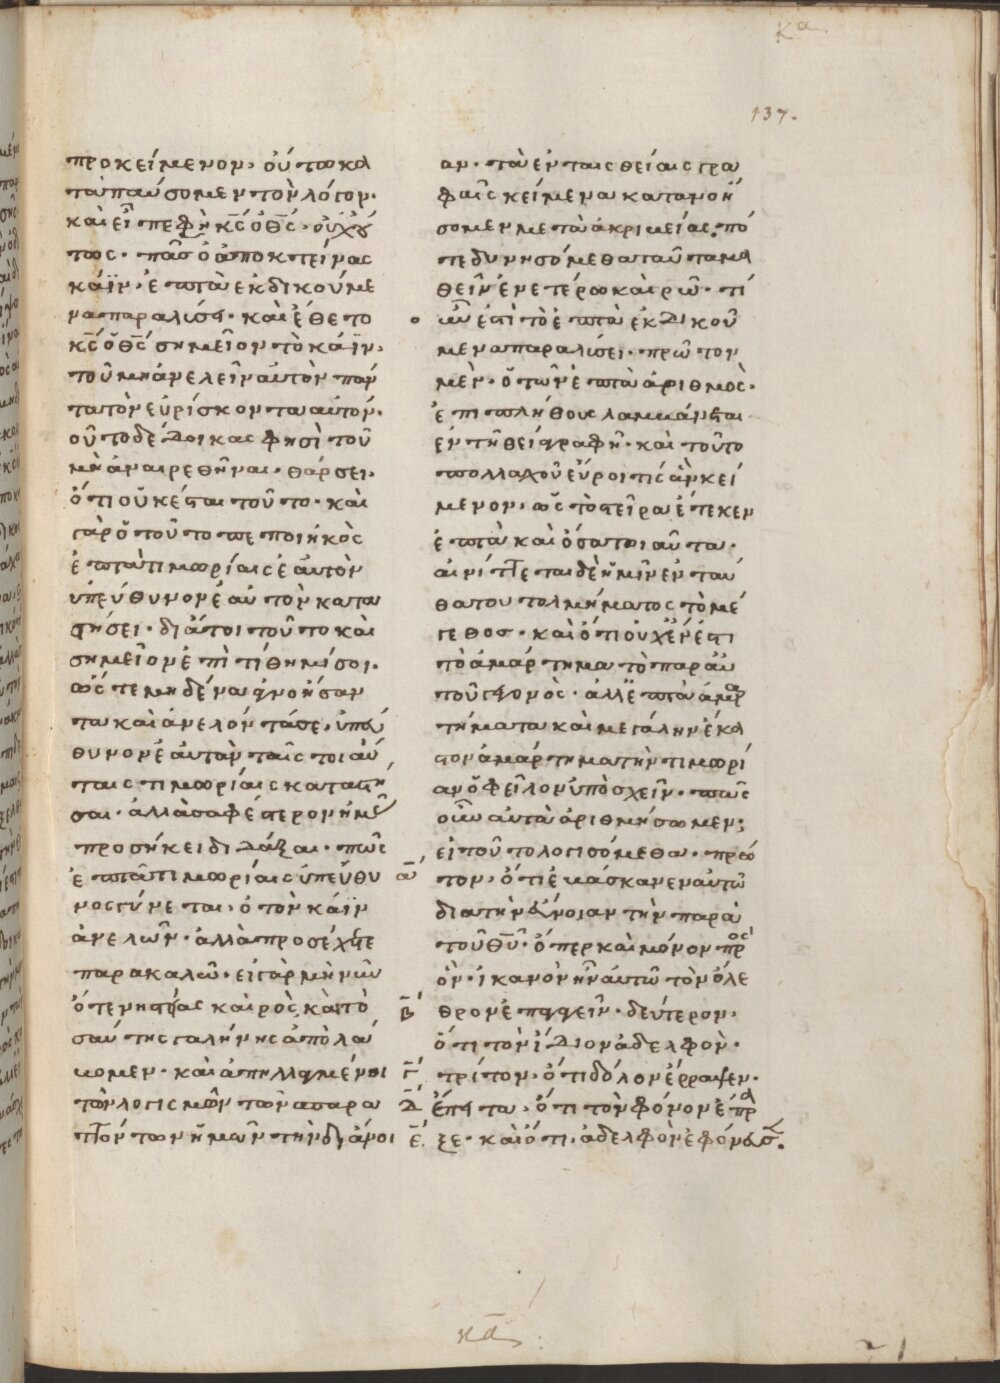 κα
137.
προκείμενον, οὕτω κα
ταπαύσομεν τὸν λόγον·
καὶ εἶπε φὴν κ̅ς̅ ὁ θ̅ς̅· οὐχ οὕ
τως· πᾶς ὁ ἀποκτείνας
κάϊν· ἑπτὰ ἐκδικούμε
να παραλύσει· καὶ ἔθετο
κ̅ς̅ ὁ θ̅ς̅ σημεῖον τὸ κάϊν,
τοῦ μὴ ἀνελεῖν αὐτὸν πάν
τα τὸν εὑρίσκοντα αὐτόν·
οὐ τοδέδοικας φησὶ τοῦ
μὴ ἀναιρεθῆναι· θάρσει·
ὅτι οὐκ ἔσται τοῦτο· καὶ
γὰρ ὁ τοῦτο πεποιηκὸς
ἑπτὰ τιμωρίαις ἑαυτὸν
ὑπεύθυνον ἑαυτὸν κατα
στήσει· διάτοι τοῦτο καὶ
σημεῖον ἐπιτίθημί σοι·
ὥστε μηδένα ἀγνοήσαν
τα καὶ ἀνελόντα σε, ὑπεύ
θυνον ἑαυτὸν ταῖς τοιαύ
ταις τιμωρίαις καταστῆ
σαι· ἀλλὰ σαφέστερον ἡμᾶς
προσήκει διδάξαι· πῶς
ἑπτὰ τιμωρίαις ὑπεύθυ
νος γίνεται, ὁ τὸν κάϊν
ἀνελών· ἀλλὰ προσέχετε
παρακαλῶ· εἰ γὰρ μὴ νῦν
ὅτε νηστείας καιρὸς, κατὸ
σαύτης γαλήνης ἀπολαύ
ομεν· καὶ ἀπηλλαγμένοι
τῶν λογισμῶν τῶν παρα
ττόντων ἡμῶν τὴν διάνοι
αν· τὰ ἐν ταις θείαις γρα
φαῖς κείμενα κατανοή
σομεν μετὰ ἀκριβείας, πό
τε δυνησόμεθα ταῦτα μα
θεῖν ἐν ετέρω καιρῶ· τί
οὖν ἐστὶ τὸ ἑπτὰ ἐκδικού
μενα παραλύσει· πρῶτον
μὲν· ὁ τῶν ἑπτὰ ἀριθμὸς·
ἐπι πλήθους λαμβάνεται
ἐν τῆ θεία γραφῆ· καὶ τοῦτο
πολλαχοῦ εὕροι τίς ἂν κεί
μενον, ὡς τὸ στεῖρα ἔτεκεν
ἑπτὰ καὶ ὅσα τοιαῦτα·
αἰνίττεται δὲ ἡμῖν ἐνταύ
θα του τολμήματος τὸ μέ
γεθος· καὶ ὅτι οὐχ ἕν ἐστι
τὸ ἁμάρτημα τὸ παρ αὐ
τοῦ γεγονὸς· ἀλλ ἑπτὰ ἁμαρ
τήματα καὶ μεγάλην ἕκα
στον ἁμάρτημα τὴν τιμωρί
αν ὀφεῖλον ὑπόσχεῖν· πῶς
οὖν αὐτὰ ἀριθμήσωμεν;
εἰ τοῦτο λογισόμεθα· πρῶ
α̅ τον, ὅτι ἐβάσκανεν αὐτῶ
διὰ τὴν εὔνοιαν τὴν παρὰ
τοῦ θ̅υ̅· ὅπερ καὶ μόνον πρὸς
ὃν· ἱκανὸν ἦν αὐτῶ τὸν ὄλε
β̅ θρον ἐπαγαγεῖν· δεύτερον,
ὅτι τὸν ἴδιον ἀδελφὸν·
γ̅ τρίτον, ὅτι δόλον ἔρραψεν·
δ̅ ἔπειτα, ὅτι τὸν φόνον ἔπρα
ε̅ ξε· καὶ ὅτι, ἀδελφὸν ἐφόνευσ̅.
κα